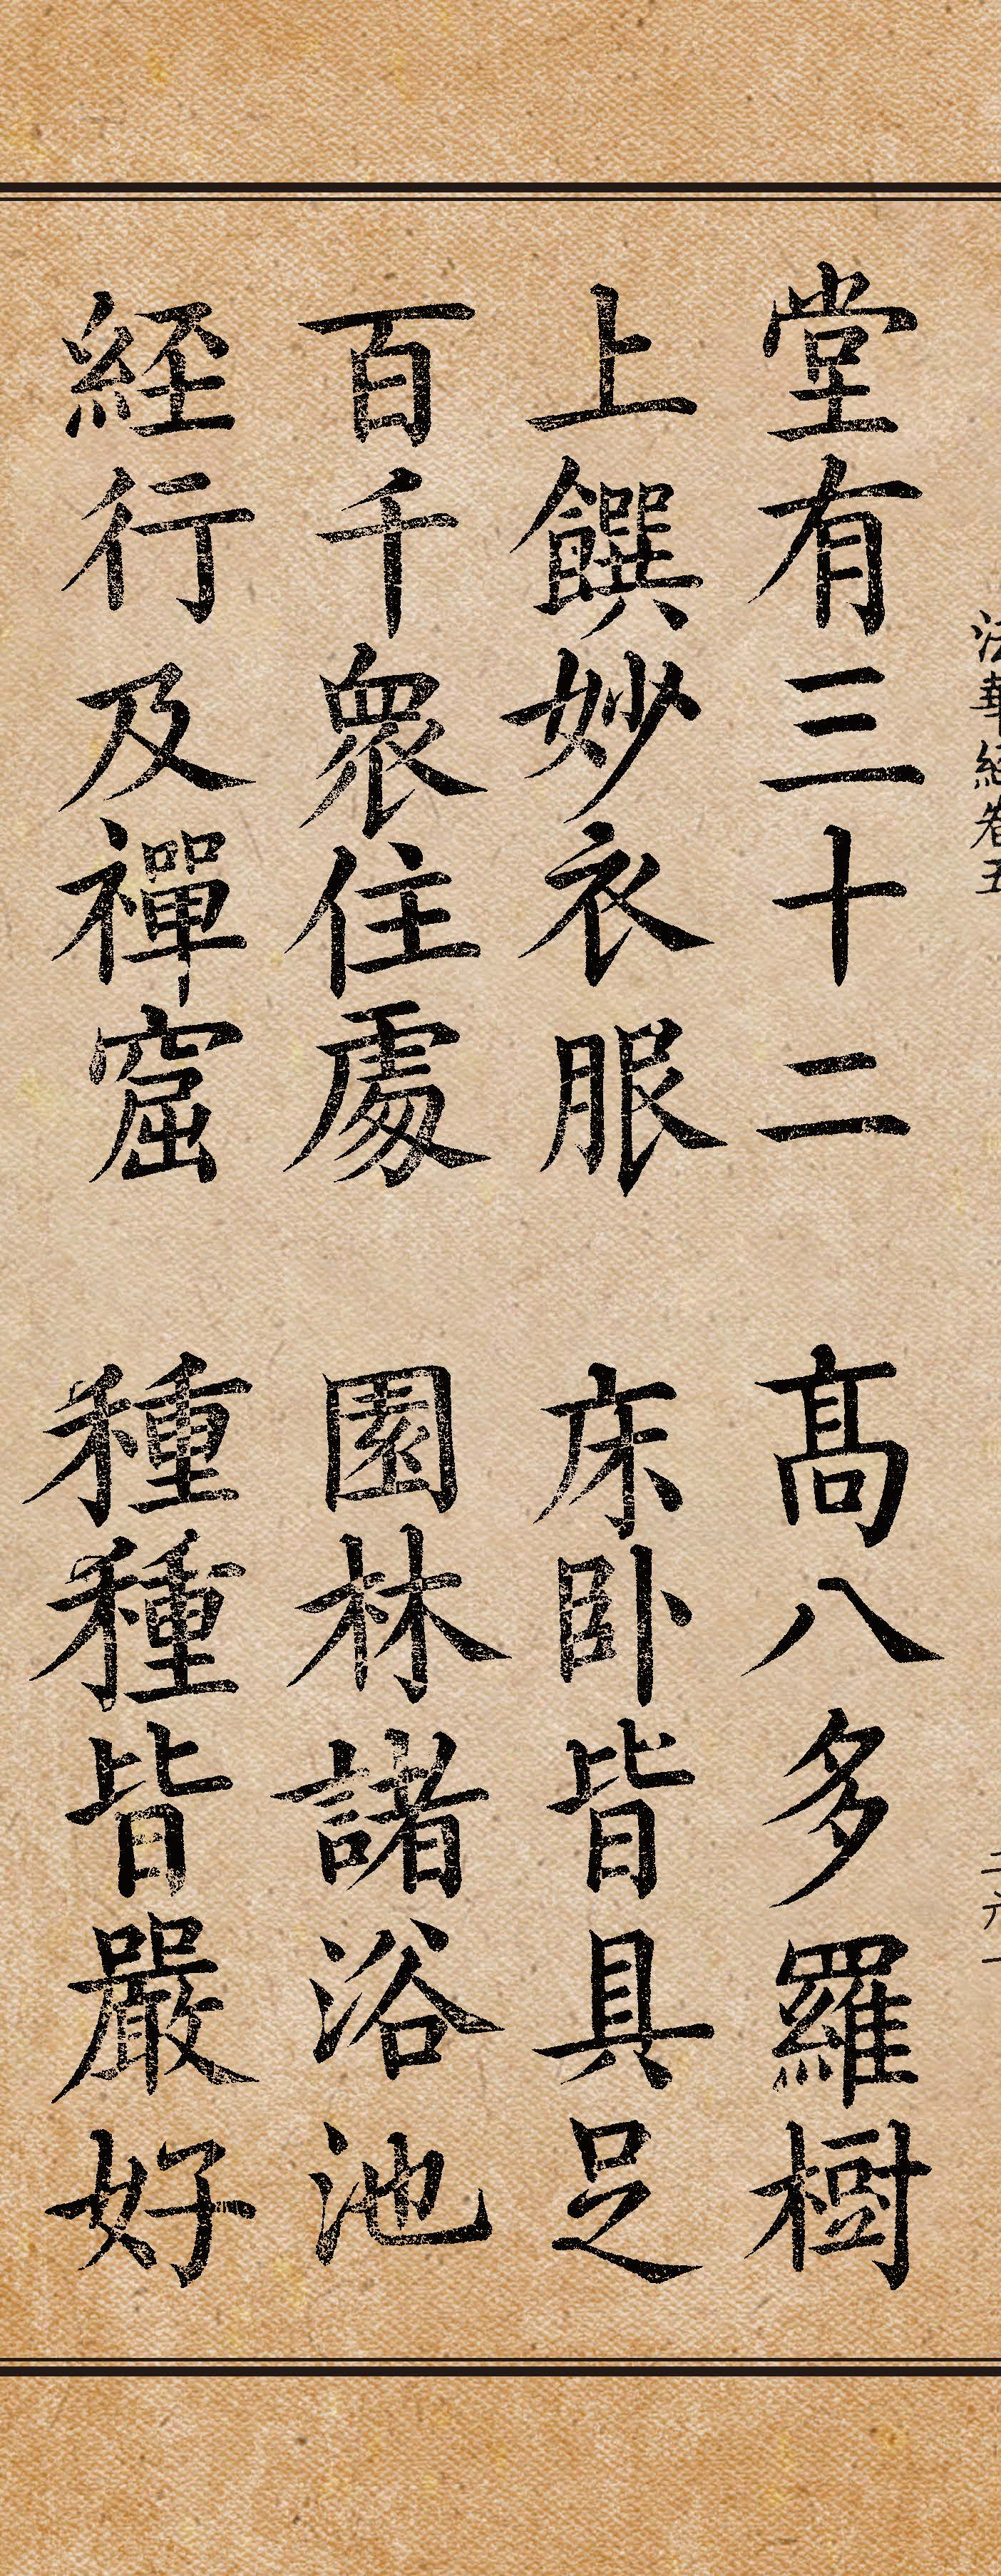 法華經卷五 二六一
堂有三十二 高八多羅樹
上饌妙衣服 床臥皆具足
百千衆住處 園林諸浴池
経行及禪窟 種種皆嚴好